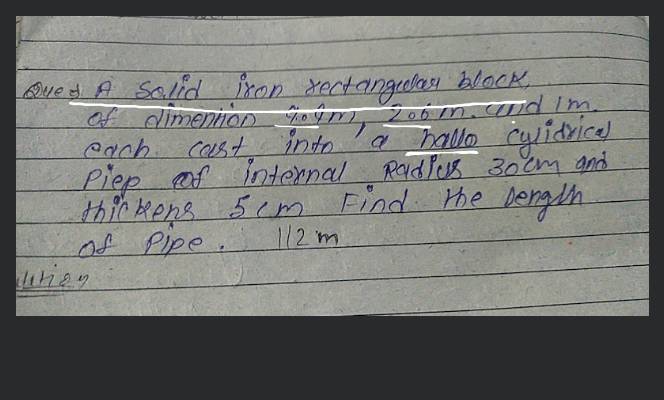 Ques A Solid iron rectangular block
of dimention 4.4m, 2.6m. and 1m.
each cast into a hallo cylidrical
Piep of internal Radius 30cm and
thickens 5cm Find the length
of Pipe. 112m